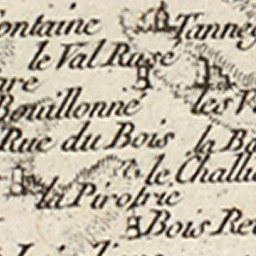 ontaine
Tanneg
le Val Ruse
are
Bouillonné
les V
Rue du Bois
la Ba
le Challu
la Pirotrie
Bois Re